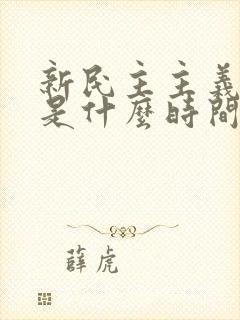 新民主主義
是什麼時間
薛虎